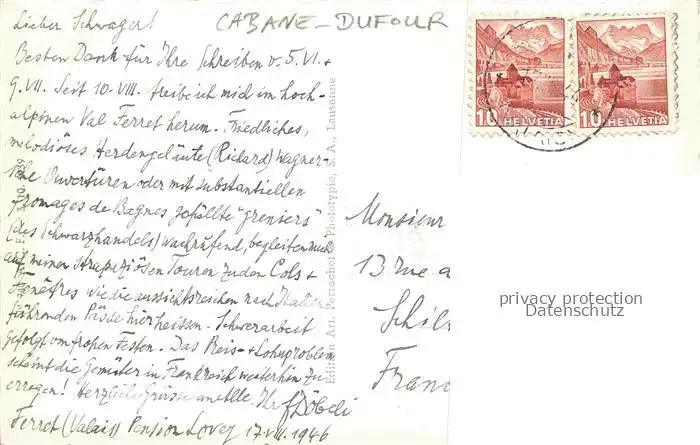 CABANE-DUFOUR
Lieber Schwager!
Besten Dank für Ihre Schreiben v. 5.VI. +
9.VII. Seit 10.VIII. treibe ich mich im hoch-
alpinen Val Ferret herum. Friedliches,
melodiöses Herdengeläute (Richard) Wagner-
sche Ouvertüren oder mit substantiellen
fromages de Bagnes gefüllte "greniers"
(des Schwarzhandels) wachrufend, begleiten mich
auf meinen strapaziösen Touren zu den Cols +
Fenêtres wie die aussichtsreichen nach Italien
führenden Pässe hier heissen. Schwerarbeit
gefolgt von frohen Festen. Das Preis- + Lohnproblem
scheint die Gemüter in Frankreich weiterhin zu
erregen! Herzliche Grüsse an alle. Ihr
Ferret (Valais) Pension Lovey 17.VIII.1946
Edition Art. Perrochet & Phototypie, S. A., Lausanne
10 HELVETIA
10 HELVETIA
Monsieur
13 rue
Schil
Franc
privacy protection
Datenschutz